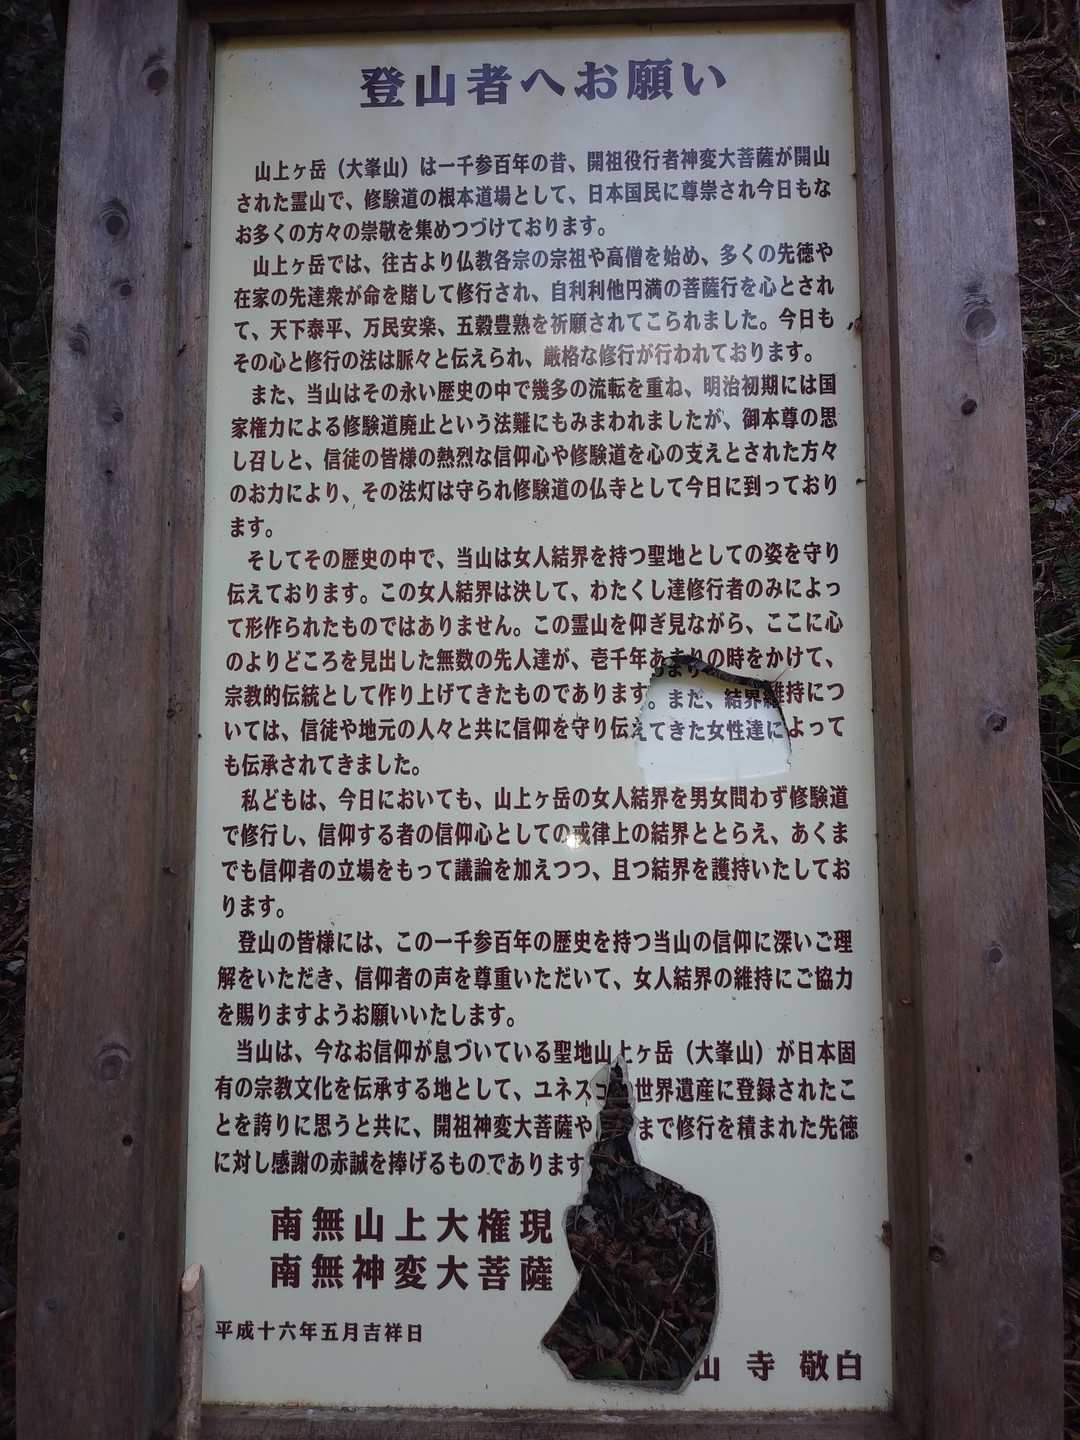 登山者へお願い
山上ヶ岳（大峯山）は一千参百年の昔、開祖役行者神変大菩薩が開山
された霊山で、修験道の根本道場として、日本国民に尊崇され今日もな
お多くの方々の崇敬を集めつづけております。
山上ヶ岳では、往古より仏教各宗の宗祖や高僧を始め、多くの先徳や
在家の先達衆が命を賭して修行され、自利利他円満の菩薩行を心とされ
て、天下泰平、万民安楽、五穀豊熟を祈願されてこられました。今日も
その心と修行の法は脈々と伝えられ、厳格な修行が行われております。
また、当山はその永い歴史の中で幾多の流転を重ね、明治初期には国
家権力による修験道廃止という法難にもみまわれましたが、御本尊の思
し召しと、信徒の皆様の熱烈な信仰心や修験道を心の支えとされた方々
のお力により、その法灯は守られ修験道の仏寺として今日に到っており
ます。
そしてその歴史の中で、当山は女人結界を持つ聖地としての姿を守り
伝えております。この女人結界は決して、わたくし達修行者のみによっ
て形作られたものではありません。この霊山を仰ぎ見ながら、ここに心
のよりどころを見出した無数の先人達が、壱千年あまりの時をかけて、
宗教的伝統として作り上げてきたものであります。まだ、結界維持につ
いては、信徒や地元の人々と共に信仰を守り伝えてきた女性達によって
も伝承されてきました。
私どもは、今日においても、山上ヶ岳の女人結界を男女問わず修験道
で修行し、信仰する者の信仰心としての戒律上の結界ととらえ、あくま
でも信仰者の立場をもって議論を加えつつ、且つ結界を護持いたしてお
ります。
登山の皆様には、この一千参百年の歴史を持つ当山の信仰に深いご理
解をいただき、信仰者の声を尊重いただいて、女人結界の維持にご協力
を賜りますようお願いいたします。
当山は、今なお信仰が息づいている聖地山上ヶ岳（大峯山）が日本固
有の宗教文化を伝承する地として、ユネスコ世界遺産に登録されたこ
とを誇りに思うと共に、開祖神変大菩薩やまで修行を積まれた先徳
に対し感謝の赤誠を捧げるものであります
南無山上大権現
南無神変大菩薩
平成十六年五月吉祥日
山寺 敬白